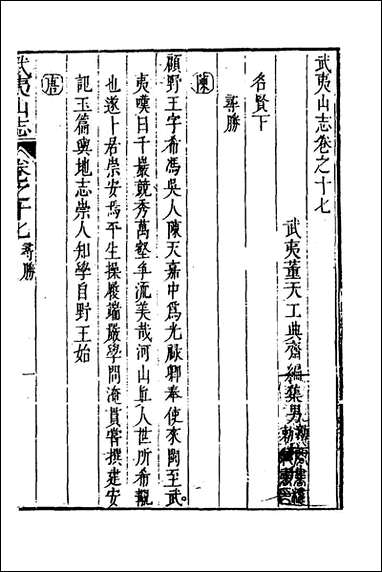 武夷山志卷之十七
武夷董天工典齋編集男
名賢下
尋勝
陳
顧野王字希馮吳人陳天嘉中爲光祿卿奉使來閩至武
夷嘆曰千巖競秀萬壑爭流美哉河山眞人世所希覯
也遂卜居崇安焉平生操履端嚴學問淹貫嘗撰建安
記玉篇輿地志崇人知學自野王始
唐
武夷山志
卷之十七 尋勝
一